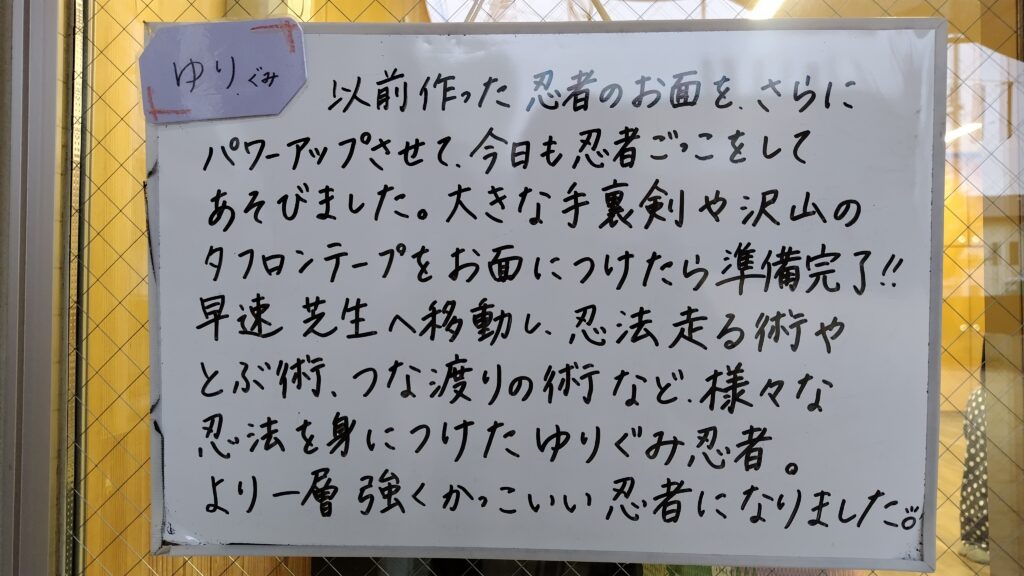 ゆり.ぐみ
以前作った忍者のお面を、さらに
パワーアップさせて、今日も忍者ごっこをして
あそびました。大きな手裏剣や沢山の
タフロンテープをお面につけたら準備完了!!
早速 芝生へ移動し、忍法走る術や
とぶ術、つな渡りの術など、様々な
忍法を身につけたゆりぐみ忍者。
より一層 強くかっこいい忍者になりました。